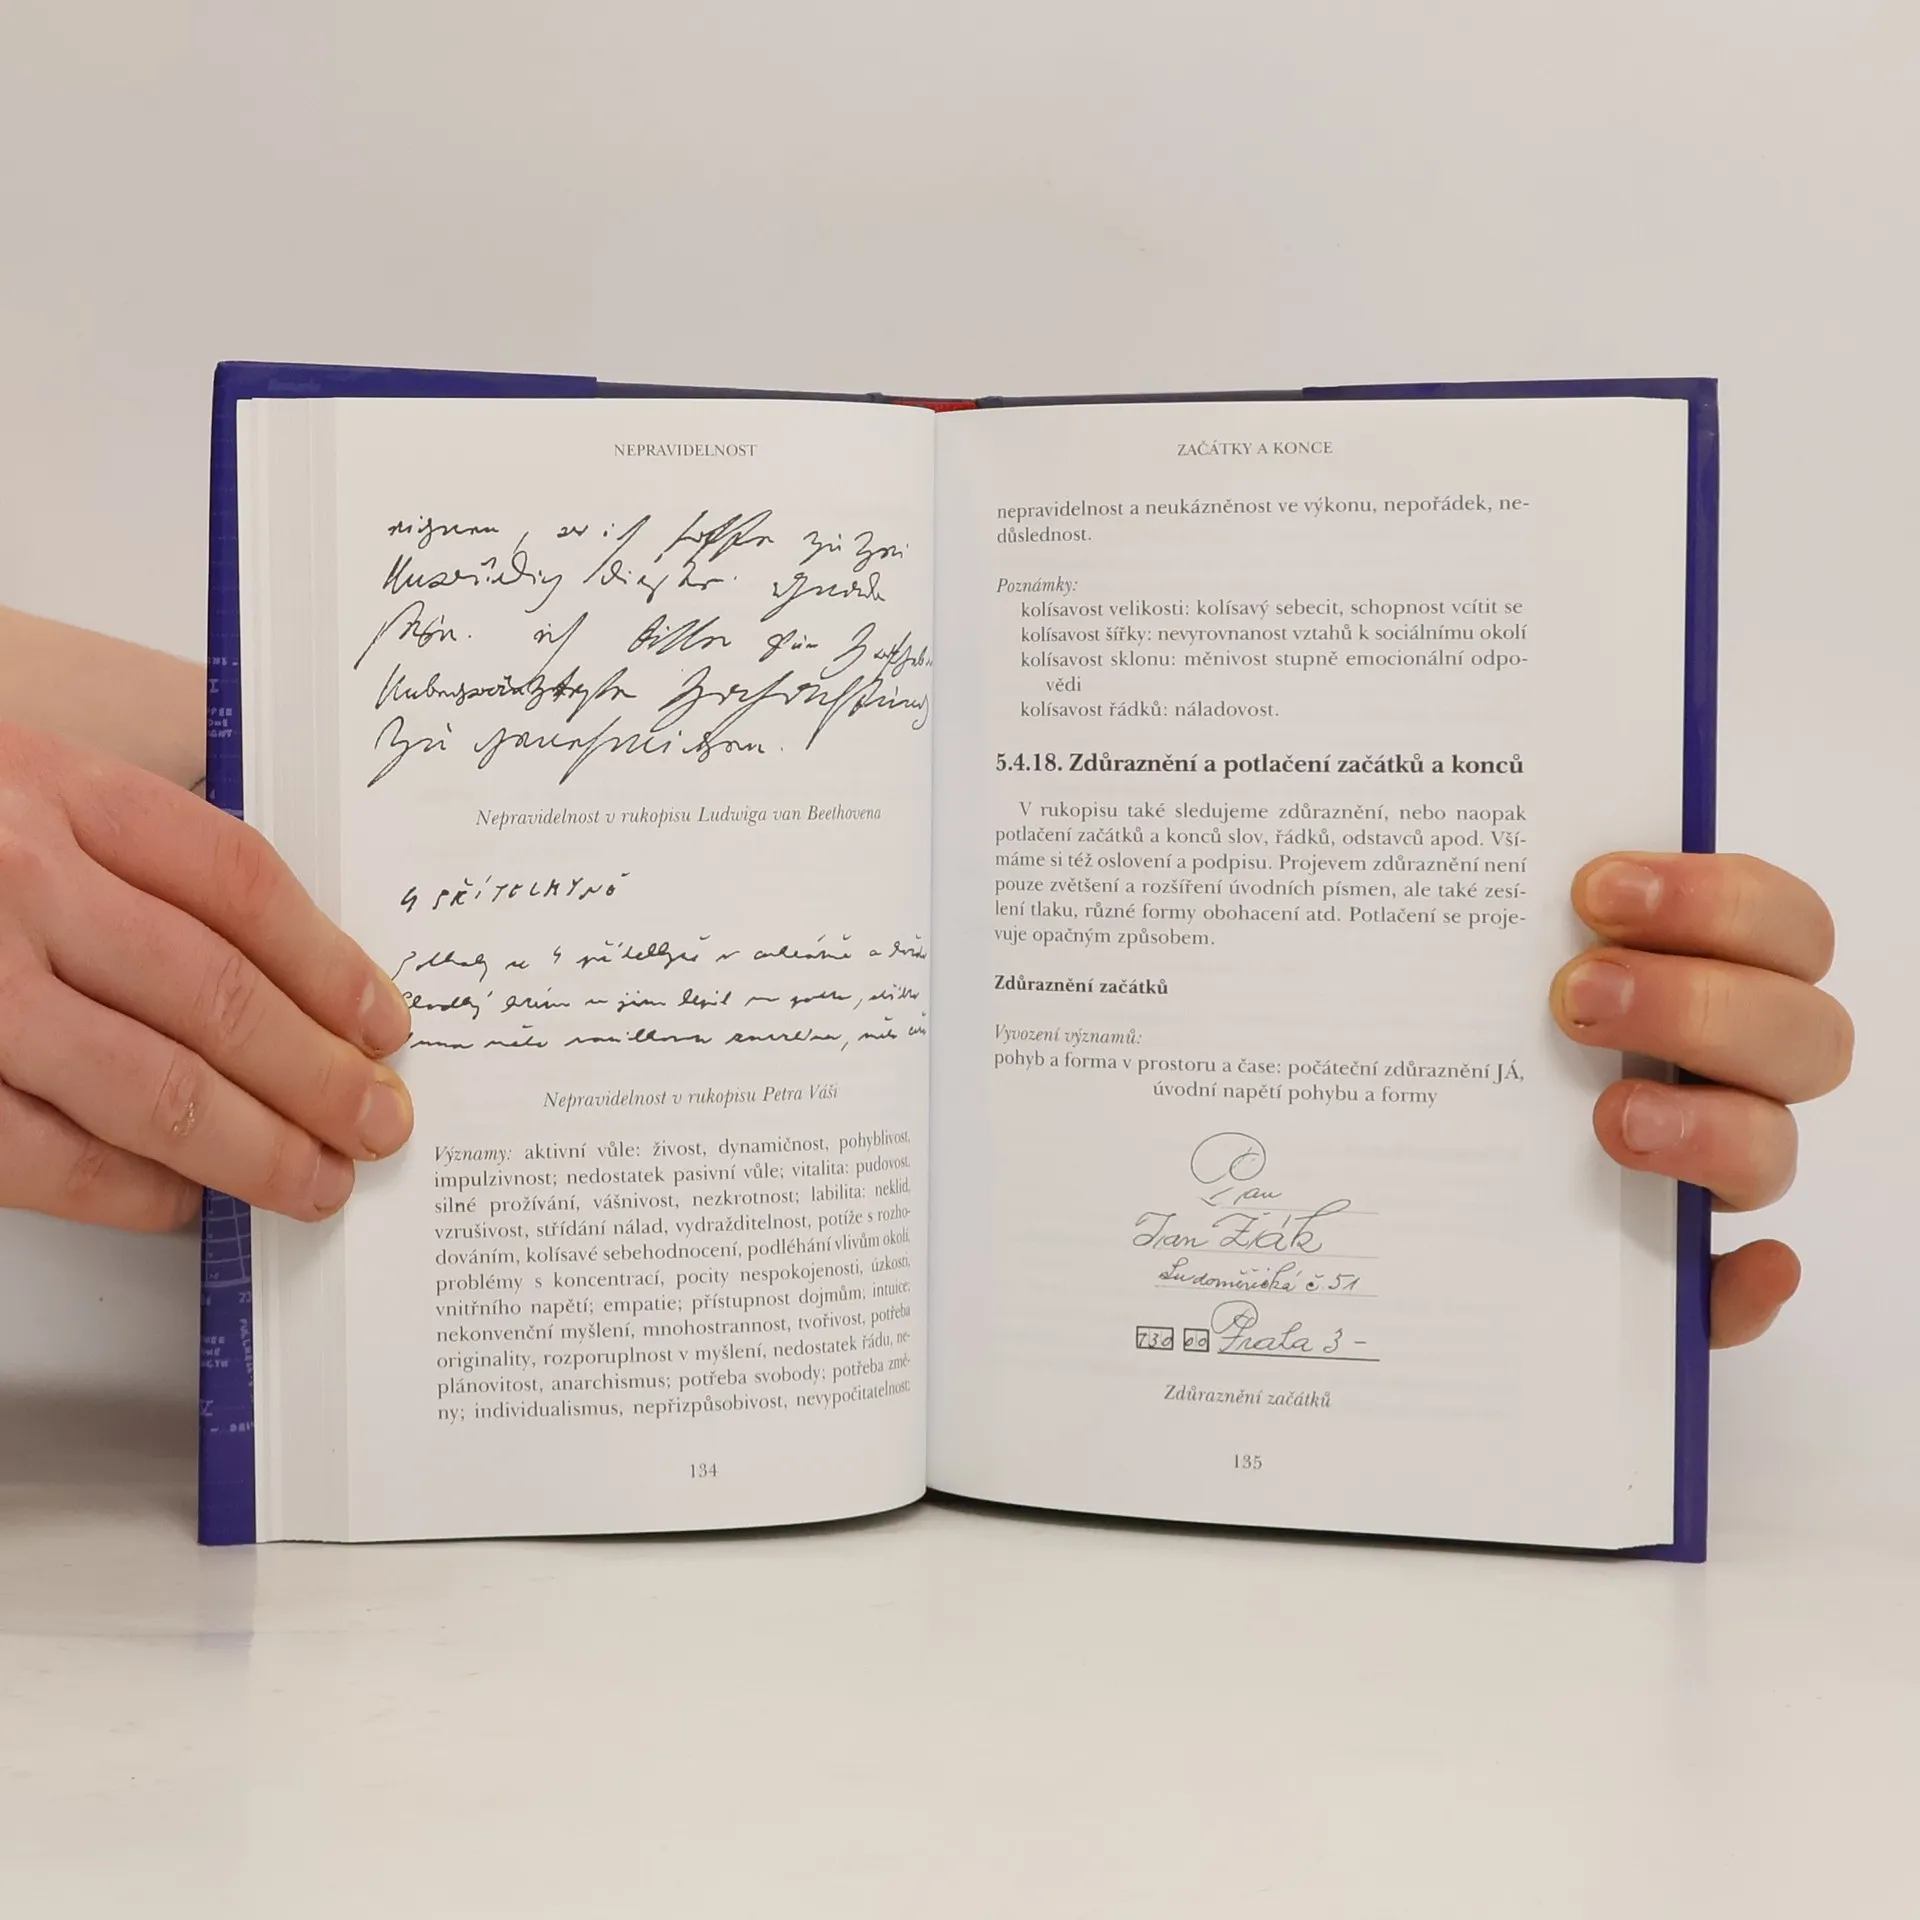 NEPRAVIDELNOST
Nepravidelnost v rukopisu Ludwiga van Beethovena
Nepravidelnost v rukopisu Petra Váši
Významy: aktivní vůle: živost, dynamičnost, pohyblivost,
impulzivnost; nedostatek pasivní vůle; vitalita: pudovost,
silné prožívání, vášnivost, nezkrotnost; labilita: neklid,
vzrušivost, střídání nálad, vydrážditelnost, potíže s rozho-
dováním, kolísavé sebehodnocení, podléhání vlivům okolí,
problémy s koncentrací, pocity nespokojenosti, úzkosti,
vnitřního napětí; empatie; přístupnost dojmům; intuice;
nekonvenční myšlení, mnohostrannost, tvořivost, potřeba
originality, rozporuplnost v myšlení, nedostatek řádu, ne-
plánovitost, anarchismus; potřeba svobody; potřeba změ-
ny; individualismus, nepřizpůsobivost, nevypočitatelnost;
134
ZAČÁTKY A KONCE
nepravidelnost a neukázněnost ve výkonu, nepořádek, ne-
důslednost.
Poznámky:
kolísavost velikosti: kolísavý sebecit, schopnost vcítit se
kolísavost šířky: nevyrovnanost vztahů k sociálnímu okolí
kolísavost sklonu: měnivost stupně emocionální odpo-
vědi
kolísavost řádků: náladovost.
5.4.18. Zdůraznění a potlačení začátků a konců
V rukopisu také sledujeme zdůraznění, nebo naopak
potlačení začátků a konců slov, řádků, odstavců apod. Vší-
máme si též oslovení a podpisu. Projevem zdůraznění není
pouze zvětšení a rozšíření úvodních písmen, ale také zesí-
lení tlaku, různé formy obohacení atd. Potlačení se proje-
vuje opačným způsobem.
Zdůraznění začátků
Vyvození významů:
pohyb a forma v prostoru a čase: počáteční zdůraznění JÁ,
úvodní napětí pohybu a formy
Pan
Jan Žák
č. 51
130 00 Praha 3 -
Zdůraznění začátků
135